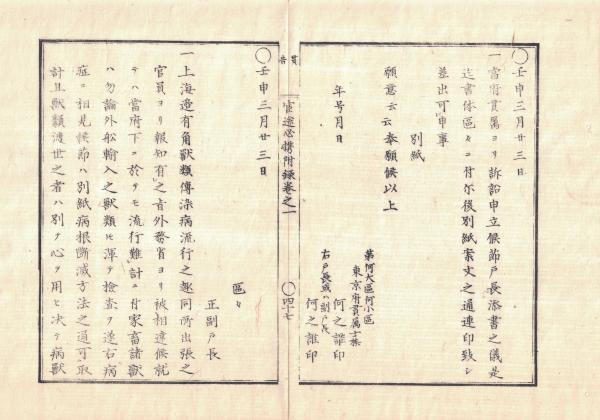 〇壬申三月廿三日
一當府貫属ヨリ訴訟申立候節戸長添書之儀是
迄書体區々ニ付尓後別紙案文之通連印致シ
差出可申事
別紙
願意云云奉願候以上
年号月日
第何大區何小區
東京府貫属士族
何之誰印
右戸長或ハ副戸長
何之誰印
貫告
官途必携附録巻之一
〇四十七
〇壬申三月廿三日
區々
正副戸長
一上海邉有角獸類傳染病流行之趣同所出張之
官員ヨリ報知有之旨外務省ヨリ被相達候就
テハ當府下ニ於テモ流行難計ニ付家畜諸獸
ハ勿論外舩輸入之獸類モ渾テ撿査ヲ遂右病
症ニ相見候節ハ別紙病根断滅方法之通可取
計且獸類渡世之者ハ別テ心ヲ用ヒ决テ病獸